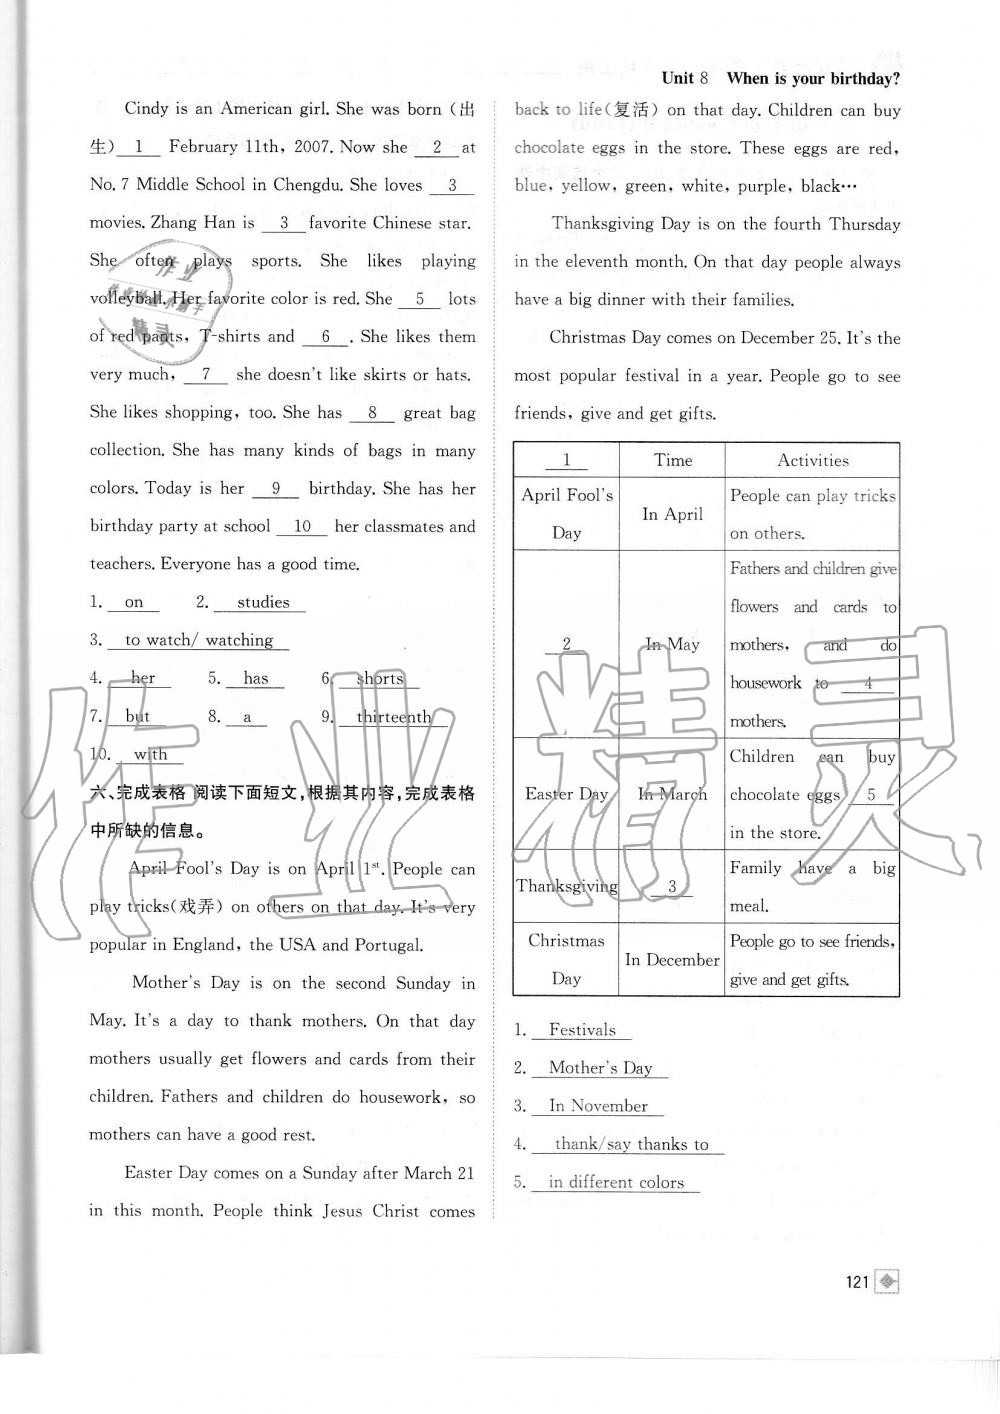 Unit 8 When is your birthday?
Cindy is an American girl. She was born (出
生) 1 February 11th, 2007. Now she 2 at
No. 7 Middle School in Chengdu. She loves 3
movies. Zhang Han is 3 favorite Chinese star.
She often plays sports. She likes playing
volleyball. Her favorite color is red. She 5 lots
of red pants, T-shirts and 6 . She likes them
very much, 7 she doesn't like skirts or hats.
She likes shopping, too. She has 8 great bag
collection. She has many kinds of bags in many
colors. Today is her 9 birthday. She has her
birthday party at school 10 her classmates and
teachers. Everyone has a good time.
1. on 2. studies
3. to watch/ watching
4. her 5. has 6. shorts
7. but 8. a 9. thirteenth
10. with
六、完成表格 阅读下面短文,根据其内容,完成表格
中所缺的信息。
April Fool's Day is on April 1st. People can
play tricks(戏弄) on others on that day. It's very
popular in England, the USA and Portugal.
Mother's Day is on the second Sunday in
May. It's a day to thank mothers. On that day
mothers usually get flowers and cards from their
children. Fathers and children do housework, so
mothers can have a good rest.
Easter Day comes on a Sunday after March 21
in this month. People think Jesus Christ comes
back to life(复活) on that day. Children can buy
chocolate eggs in the store. These eggs are red,
blue, yellow, green, white, purple, black…
Thanksgiving Day is on the fourth Thursday
in the eleventh month. On that day people always
have a big dinner with their families.
Christmas Day comes on December 25. It's the
most popular festival in a year. People go to see
friends, give and get gifts.
1 Time Activities
April Fool's
Day
In April
People can play tricks
on others.
2
In May
Fathers and children give
flowers and cards to
mothers, and do
housework to 4
mothers.
Easter Day
In March
Children can buy
chocolate eggs 5
in the store.
Thanksgiving
3
Family have a big
meal.
Christmas
Day
In December
People go to see friends,
give and get gifts.
1. Festivals
2. Mother's Day
3. In November
4. thank/say thanks to
5. in different colors
121
作业精灵